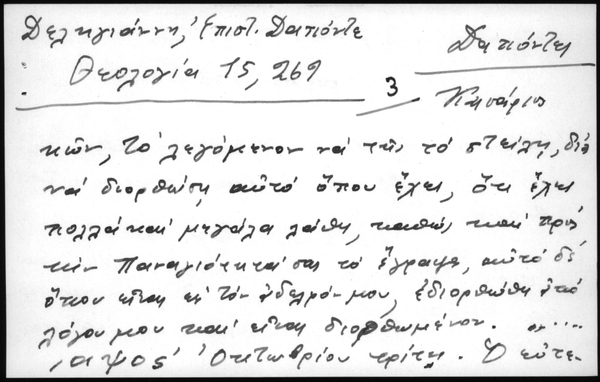 Δεληγιάννη, Ἐπιστ. Δαπόντε
Θεολογία 15, 269
Δαπόντες
3
Καισάριος
κῶν, τὸ λεγόμενον νὰ τῆς τὸ στείλῃ, διὰ
νὰ διορθώσῃ αὐτὸ ὅπου ἔχει, ὅτι ἔχει
πολλὰ καὶ μεγάλα λάθη, καθὼς καὶ πρὸς
τὴν Παναγιότητά σας τὸ ἔγραψα, αὐτὸ δὲ
ὅπου εἶναι εἰς τὸν ἀδελφόν μου, ἐδιορθώθη ἀπὸ
λόγου μου καὶ εἶναι διορθωμένον. ......
͵αψοϛʹ Ὀκτωβρίου τρίτῃ. Ὁ εὐτε-